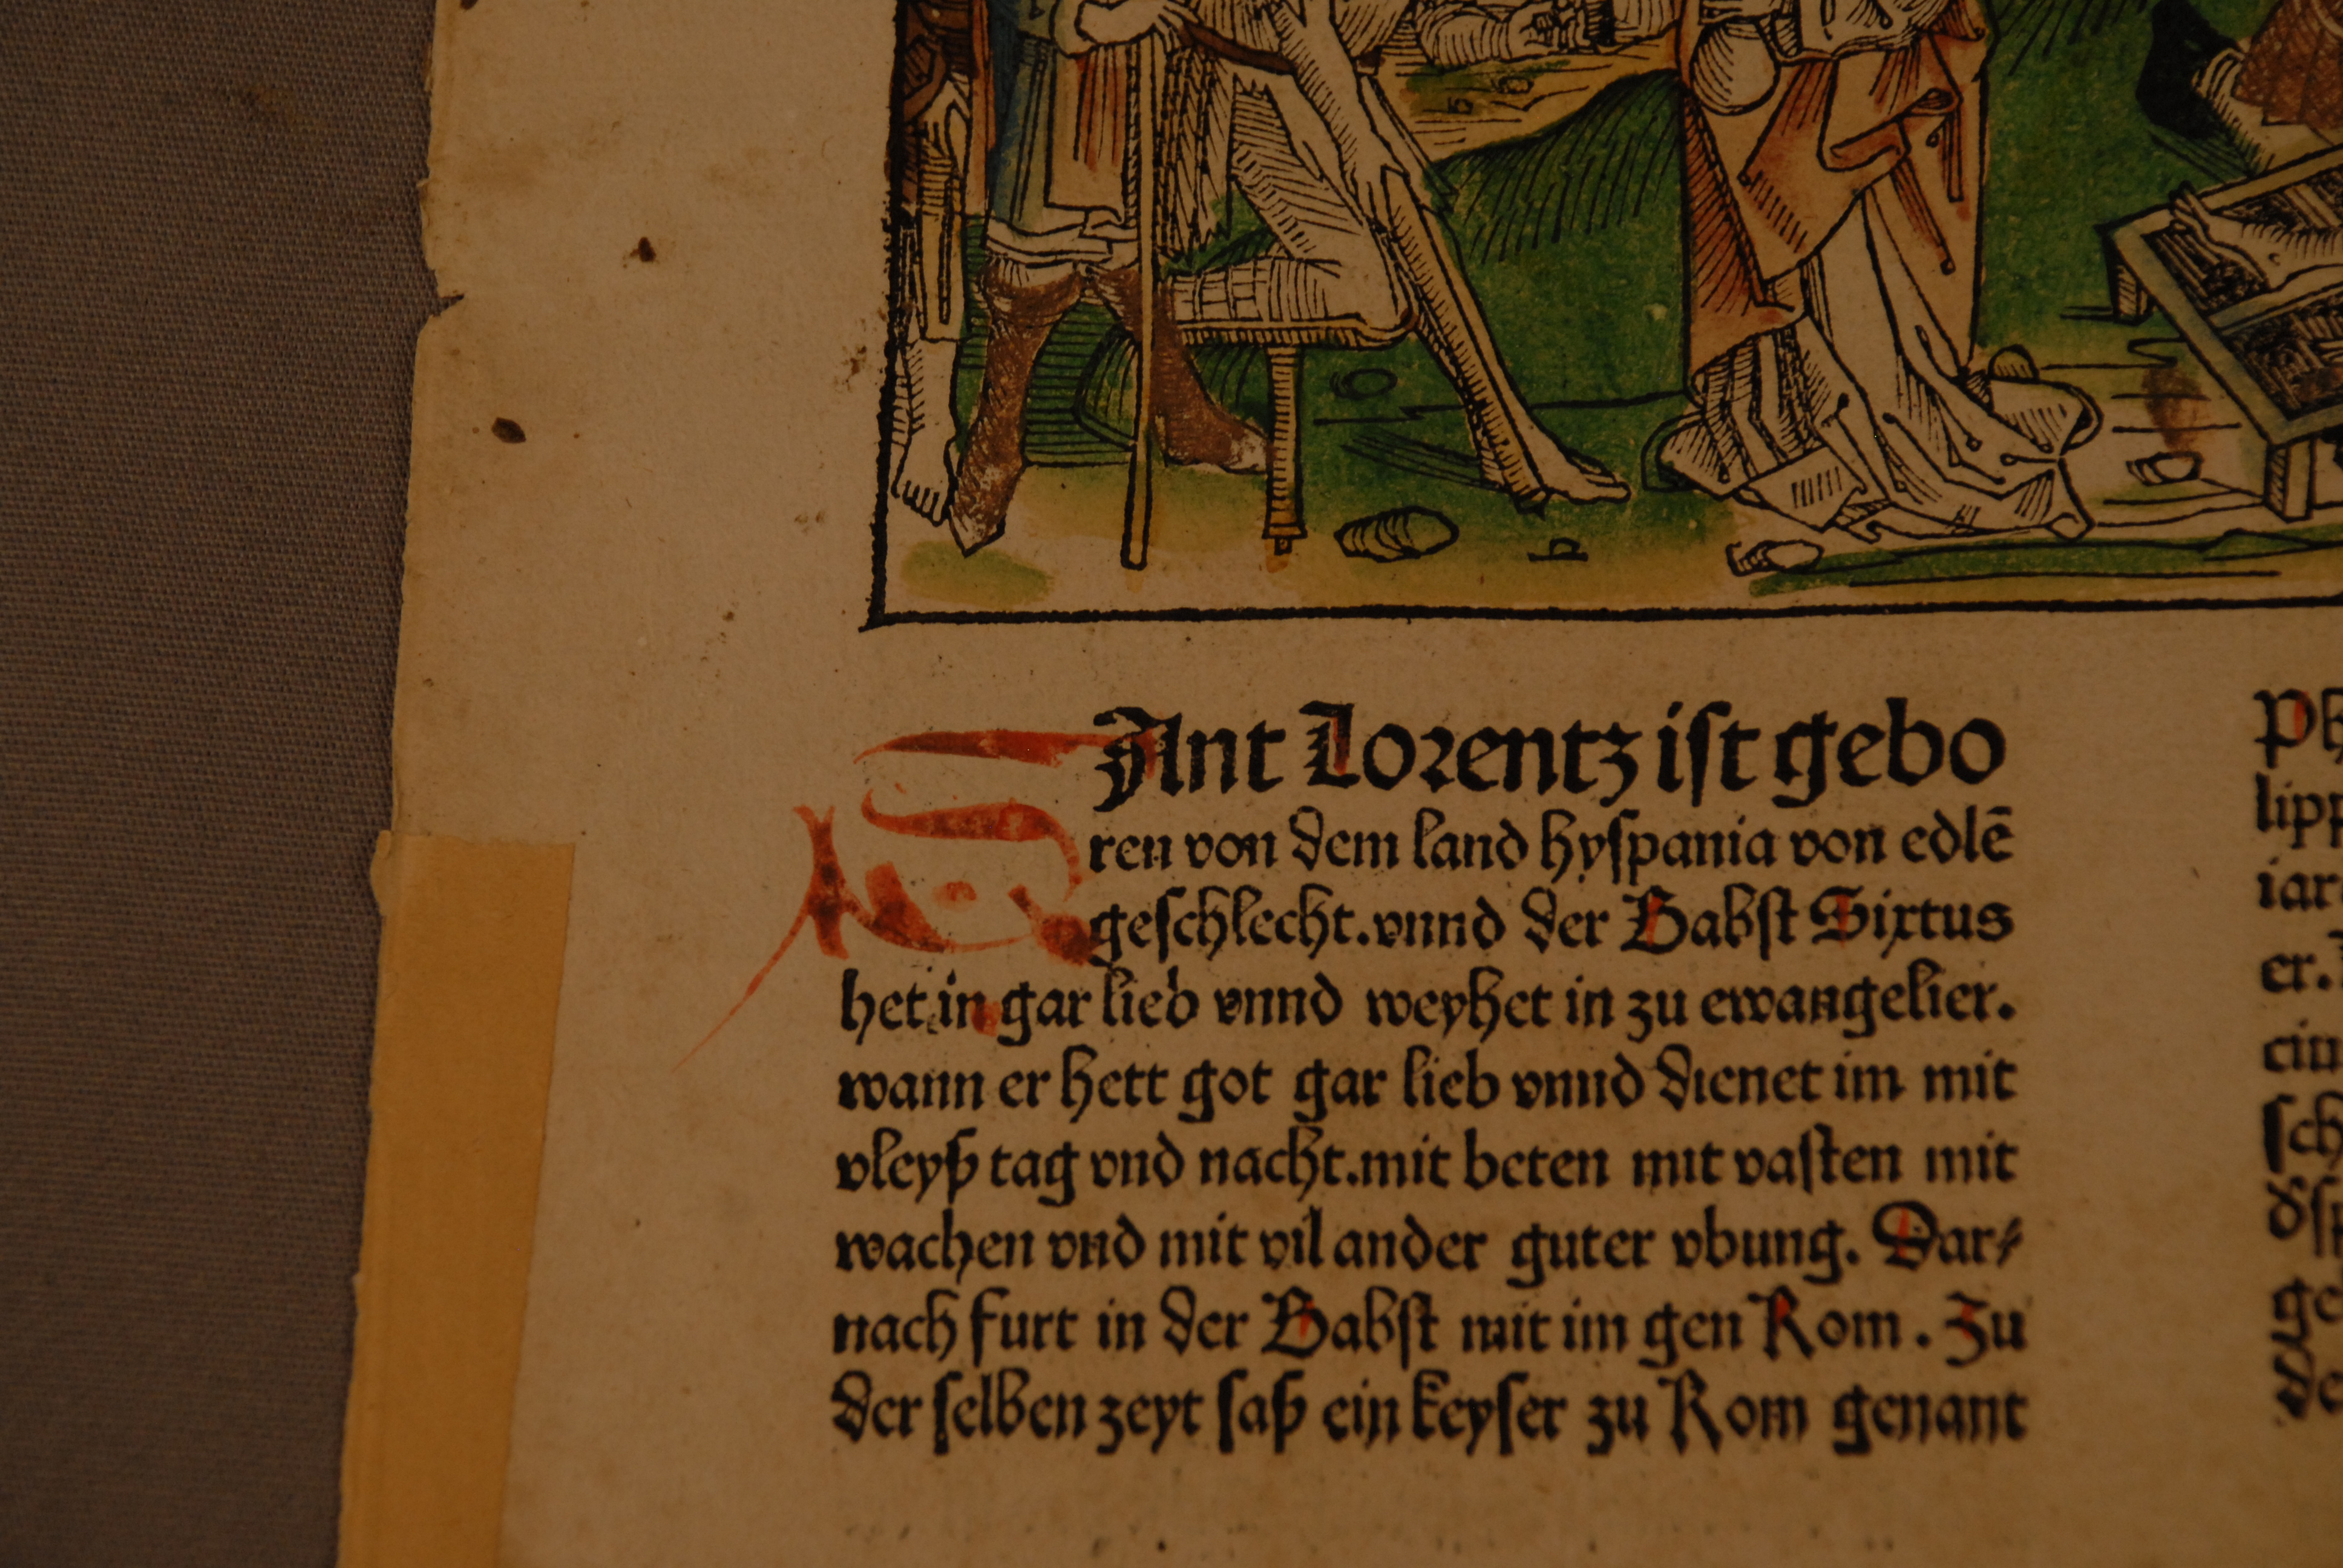 SAnt Lorentz ist gebo
ren von dem land hyspania von edlē
geschlecht. vnnd der Babst Sixtus
het in gar lieb vnnd weyhet in zu ewangelier.
wann er hett got gar lieb vnnd dienet im mit
vleyß tag vnd nacht. mit beten mit vasten mit
wachen vnd mit vil ander guter vbung. Dar⸗
nach furt in der Babst mit im gen Rom. Zu
der selben zeyt saß ein keyser zu Rom genant
Ph
lipp
iar
er.
ein
sch
ge
de